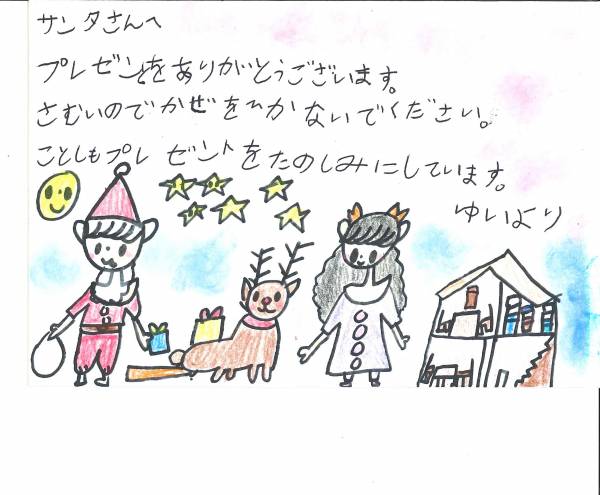 サンタさんへ
プレゼントをありがとうございます。
さむいのでかぜをひかないでください。
ことしもプレゼントをたのしみにしています。
ゆいより